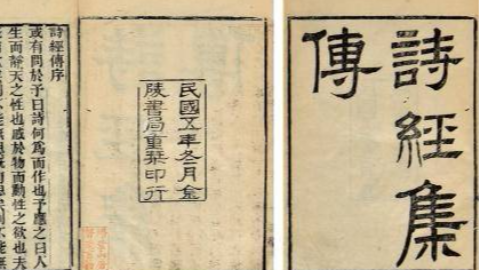 詩經集
傳
民國五年冬月金
陵書局重栞印行
詩經傳序
或有問於予曰詩何爲而作也予應之曰人
生而靜天之性也感於物而動性之欲也夫